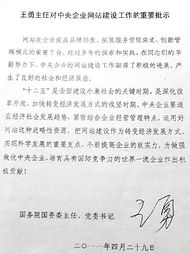 王勇主任对中央企业网站建设工作的重要批示
网站是企业提高品牌形象、拓展服务营销渠道、创新管理
模式的重要平台。经过多年的探索和实践，在同志们的辛
勤努力下，中央企业的网站建设工作取得了积极的进展，产
生了良好的社会和经济效益。
“十二五”是全面建设小康社会的关键时期，是深化改革
开放、加快转变经济发展方式的攻坚时期。中央企业要适
应经济社会发展趋势，紧密结合企业经营管理特点，运用好
网站这种战略性资源，把网站建设作为转变经济发展方式、
实现科学发展的重要支点，不断提高企业的软实力，为做强
做优中央企业、培育具有国际竞争力的世界一流企业作出积
极贡献！
国务院国资委主任、党委书记
王勇
二〇一一年四月二十九日